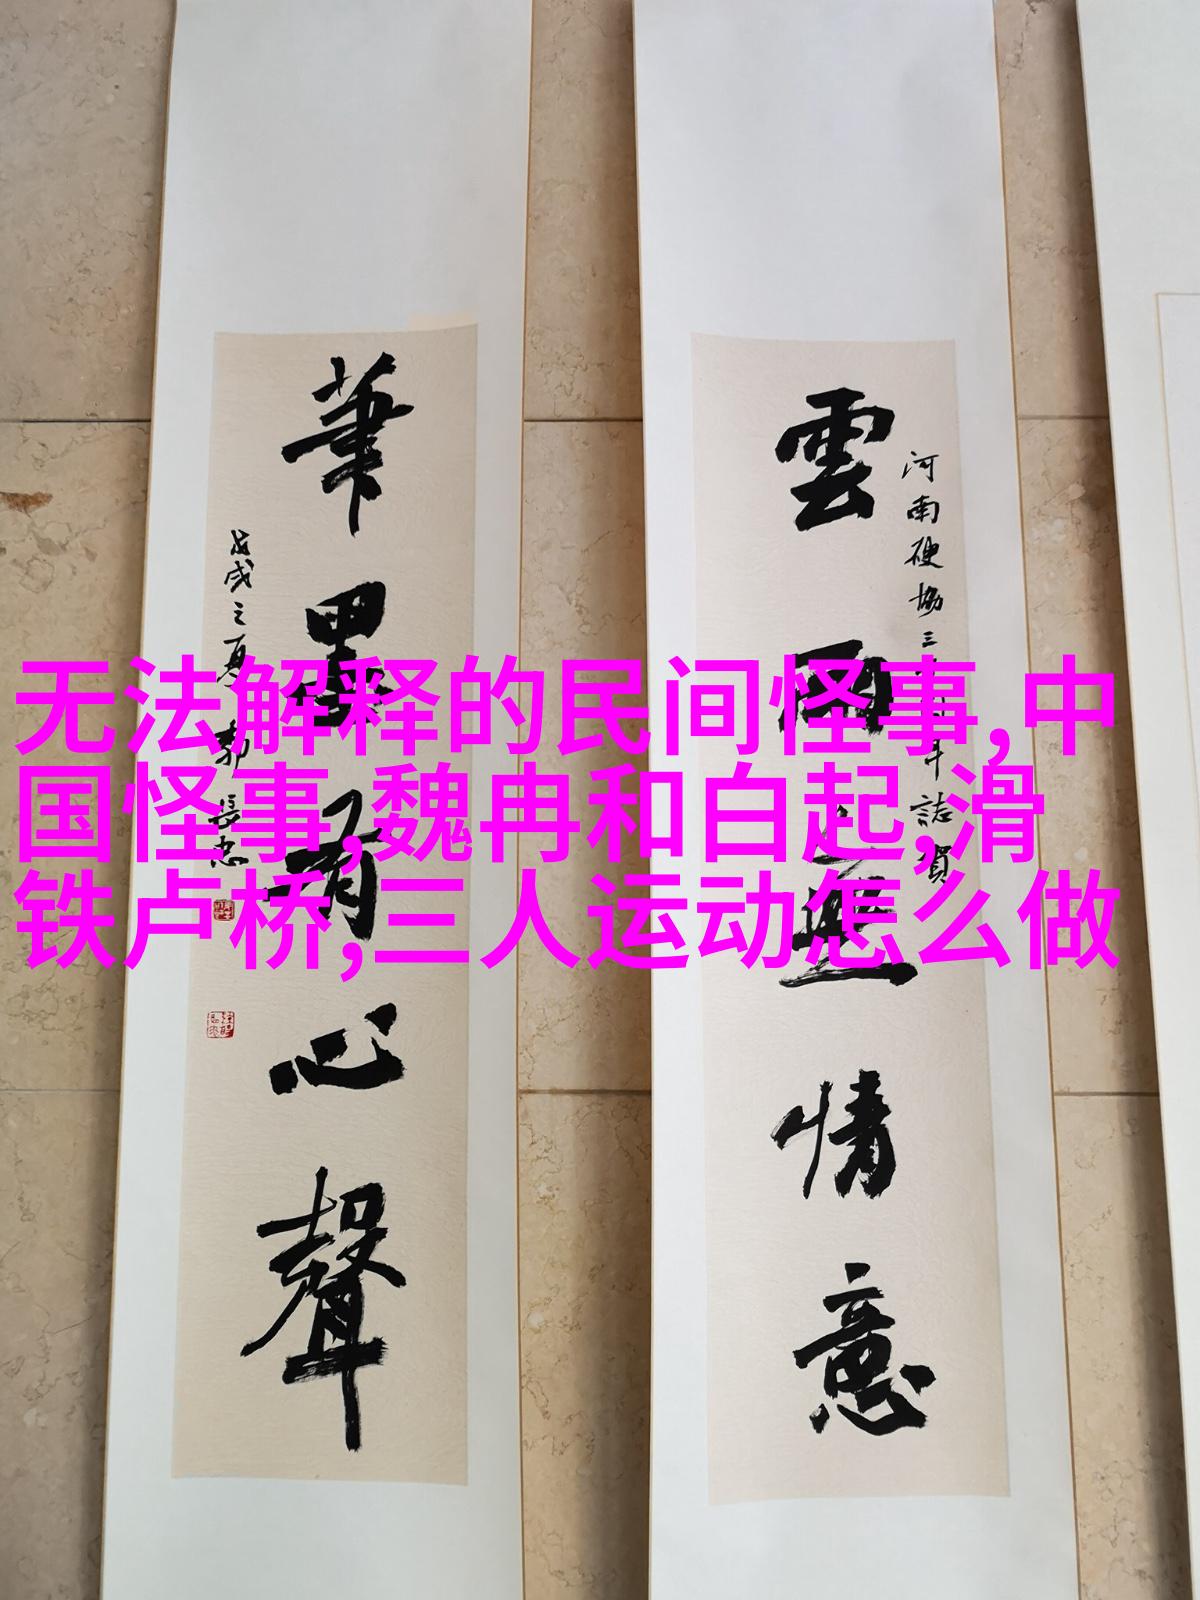 雲雨無情意
河南硬協三十周年誌賀
筆墨有心聲
戊戌之夏郭長忠
无法解释的民间怪事,中
国怪事,魏冉和白起,滑
铁卢桥,三人运动怎么做